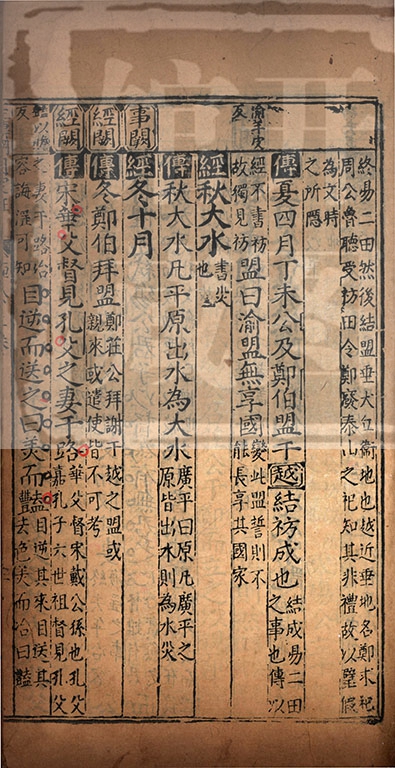 終易二田然後結盟垂犬丘衛地也越近垂地名鄭求祀
周公魯聽受祊田令鄭廢泰山之祀知其非禮故以璧假
為文時
之所隱
傳夏四月丁未公及鄭伯盟于越結祊成也結成易二田之事也傳以
經不書祊故獨見祊盟曰渝盟無享國變此盟誓則不能長享其國家
渝羊朱反
經秋大水書災也
傳秋大水凡平原出水為大水廣平曰原凡廣平之原皆出水則為水災
經冬十月
事闕
經闕
傳冬鄭伯拜盟鄭莊公拜謝于越之盟或親來或遣使皆不可考
經闕
傳宋華父督見孔父之妻于路華父督宋戴公孫也孔父嘉孔子六世祖督見孔父
之妻于路目逆而送之曰美而豔目逆其來目送其去色美而冶曰豔